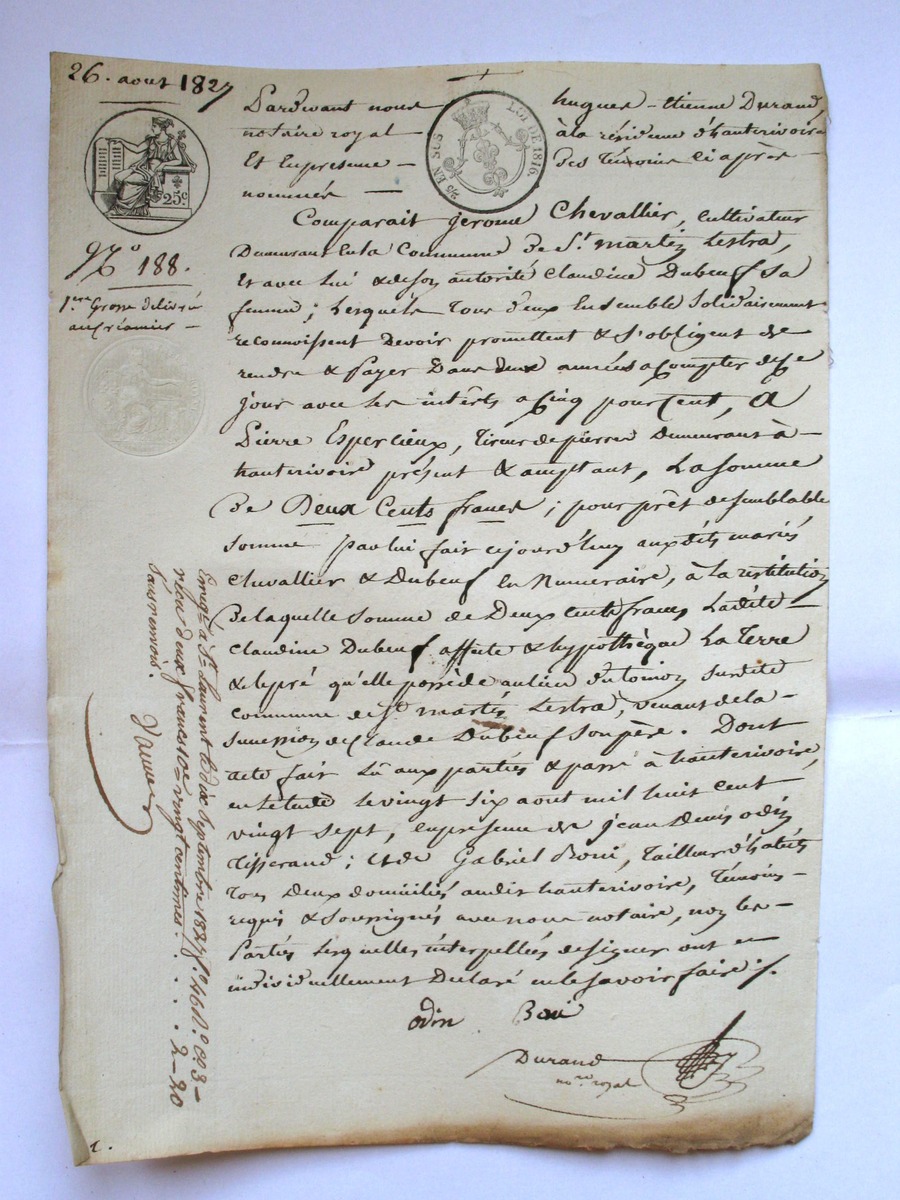 26. aout 1827
25 EN SUS LOI DE 1816.
25c.
N.o 188.
1.ere Grosse délivrée
au créancier —
Pardevant nous hugues - Etienne Durand,
notaire royal à la résidence d'hauterivoire
Et En présence — des témoins ci après —
nommés —
Comparait jerome Chevallier, cultivateur
Demeurant En la Commune de St. martin lestra,
Et avec lui & de son autorité Claudine Dubeuf sa
femme ; Lesquels tous deux Ensemble solidairement
reconnoissent devoir promettent & s'obligent de
rendre & payer dans deux années a compter de ce
jour avec les intérêts a Cinq pour Cent, a
Pierre Espercieux, tireur de pierres demeurant à —
hauterivoire présent & acceptant, La somme
de Deux Cents francs ; pour prêt de semblable
somme par lui fait cejourd'huy aux dits mariés
Chevallier & Dubeuf en Numeraire, à la restitution
de laquelle somme de Deux Cents francs Ladite —
Claudine Dubeuf affecte & hypothèque La terre
& le pré qu'elle possède au lieu du toinon susdite
commune de St. martin Lestra, venant de la —
succession de Claude Dubeuf son père. Dont
acte fait Lû aux parties & passé à hauterivoire,
en l'etude le vingt six aout mil huit cent
vingt sept, en présence de jean Denis odin
tisserand ; et de Gabriel Boni, tailleur d'habits
tous deux domiciliés audit hauterivoire, témoins —
requis & soussignés avec nous notaire, non les —
Parties lesquelles interpellées de signer ont
individuellement declaré ne le savoir faire ./.
odin Boni
Durand
no.re royal
Enreg.é à St. Laurent le dix Septembre 1827 f.o 46 R.o c. 3 —
reçu deux francs 10e vingt centimes . . . . 2 - 20
sans renvois.